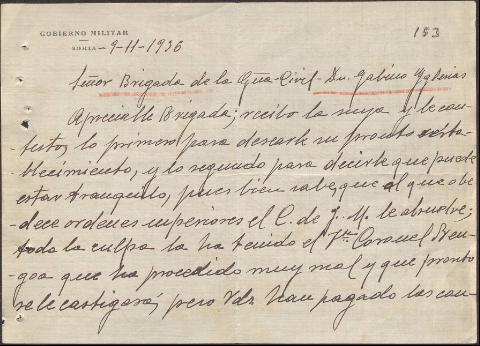 GOBIERNO MILITAR
153
SORIA - 9-11-1936
Señor Brigada de la Gua-Civil - Dn. Gabino
Apreciable Brigada; recibo la suya y le con-
testo, lo primero para desearle su pronto resta-
blecimiento, y lo segundo para decirle que puede
estar tranquilo, pues bien sabe, que al que obe-
dece ordenes superiores el C. de J. M. le absuelve;
toda la culpa la ha tenido el Tte. Coronel Ben-
goa que ha procedido muy mal y que pronto
se le castigará, pero Vds han pagado las con-